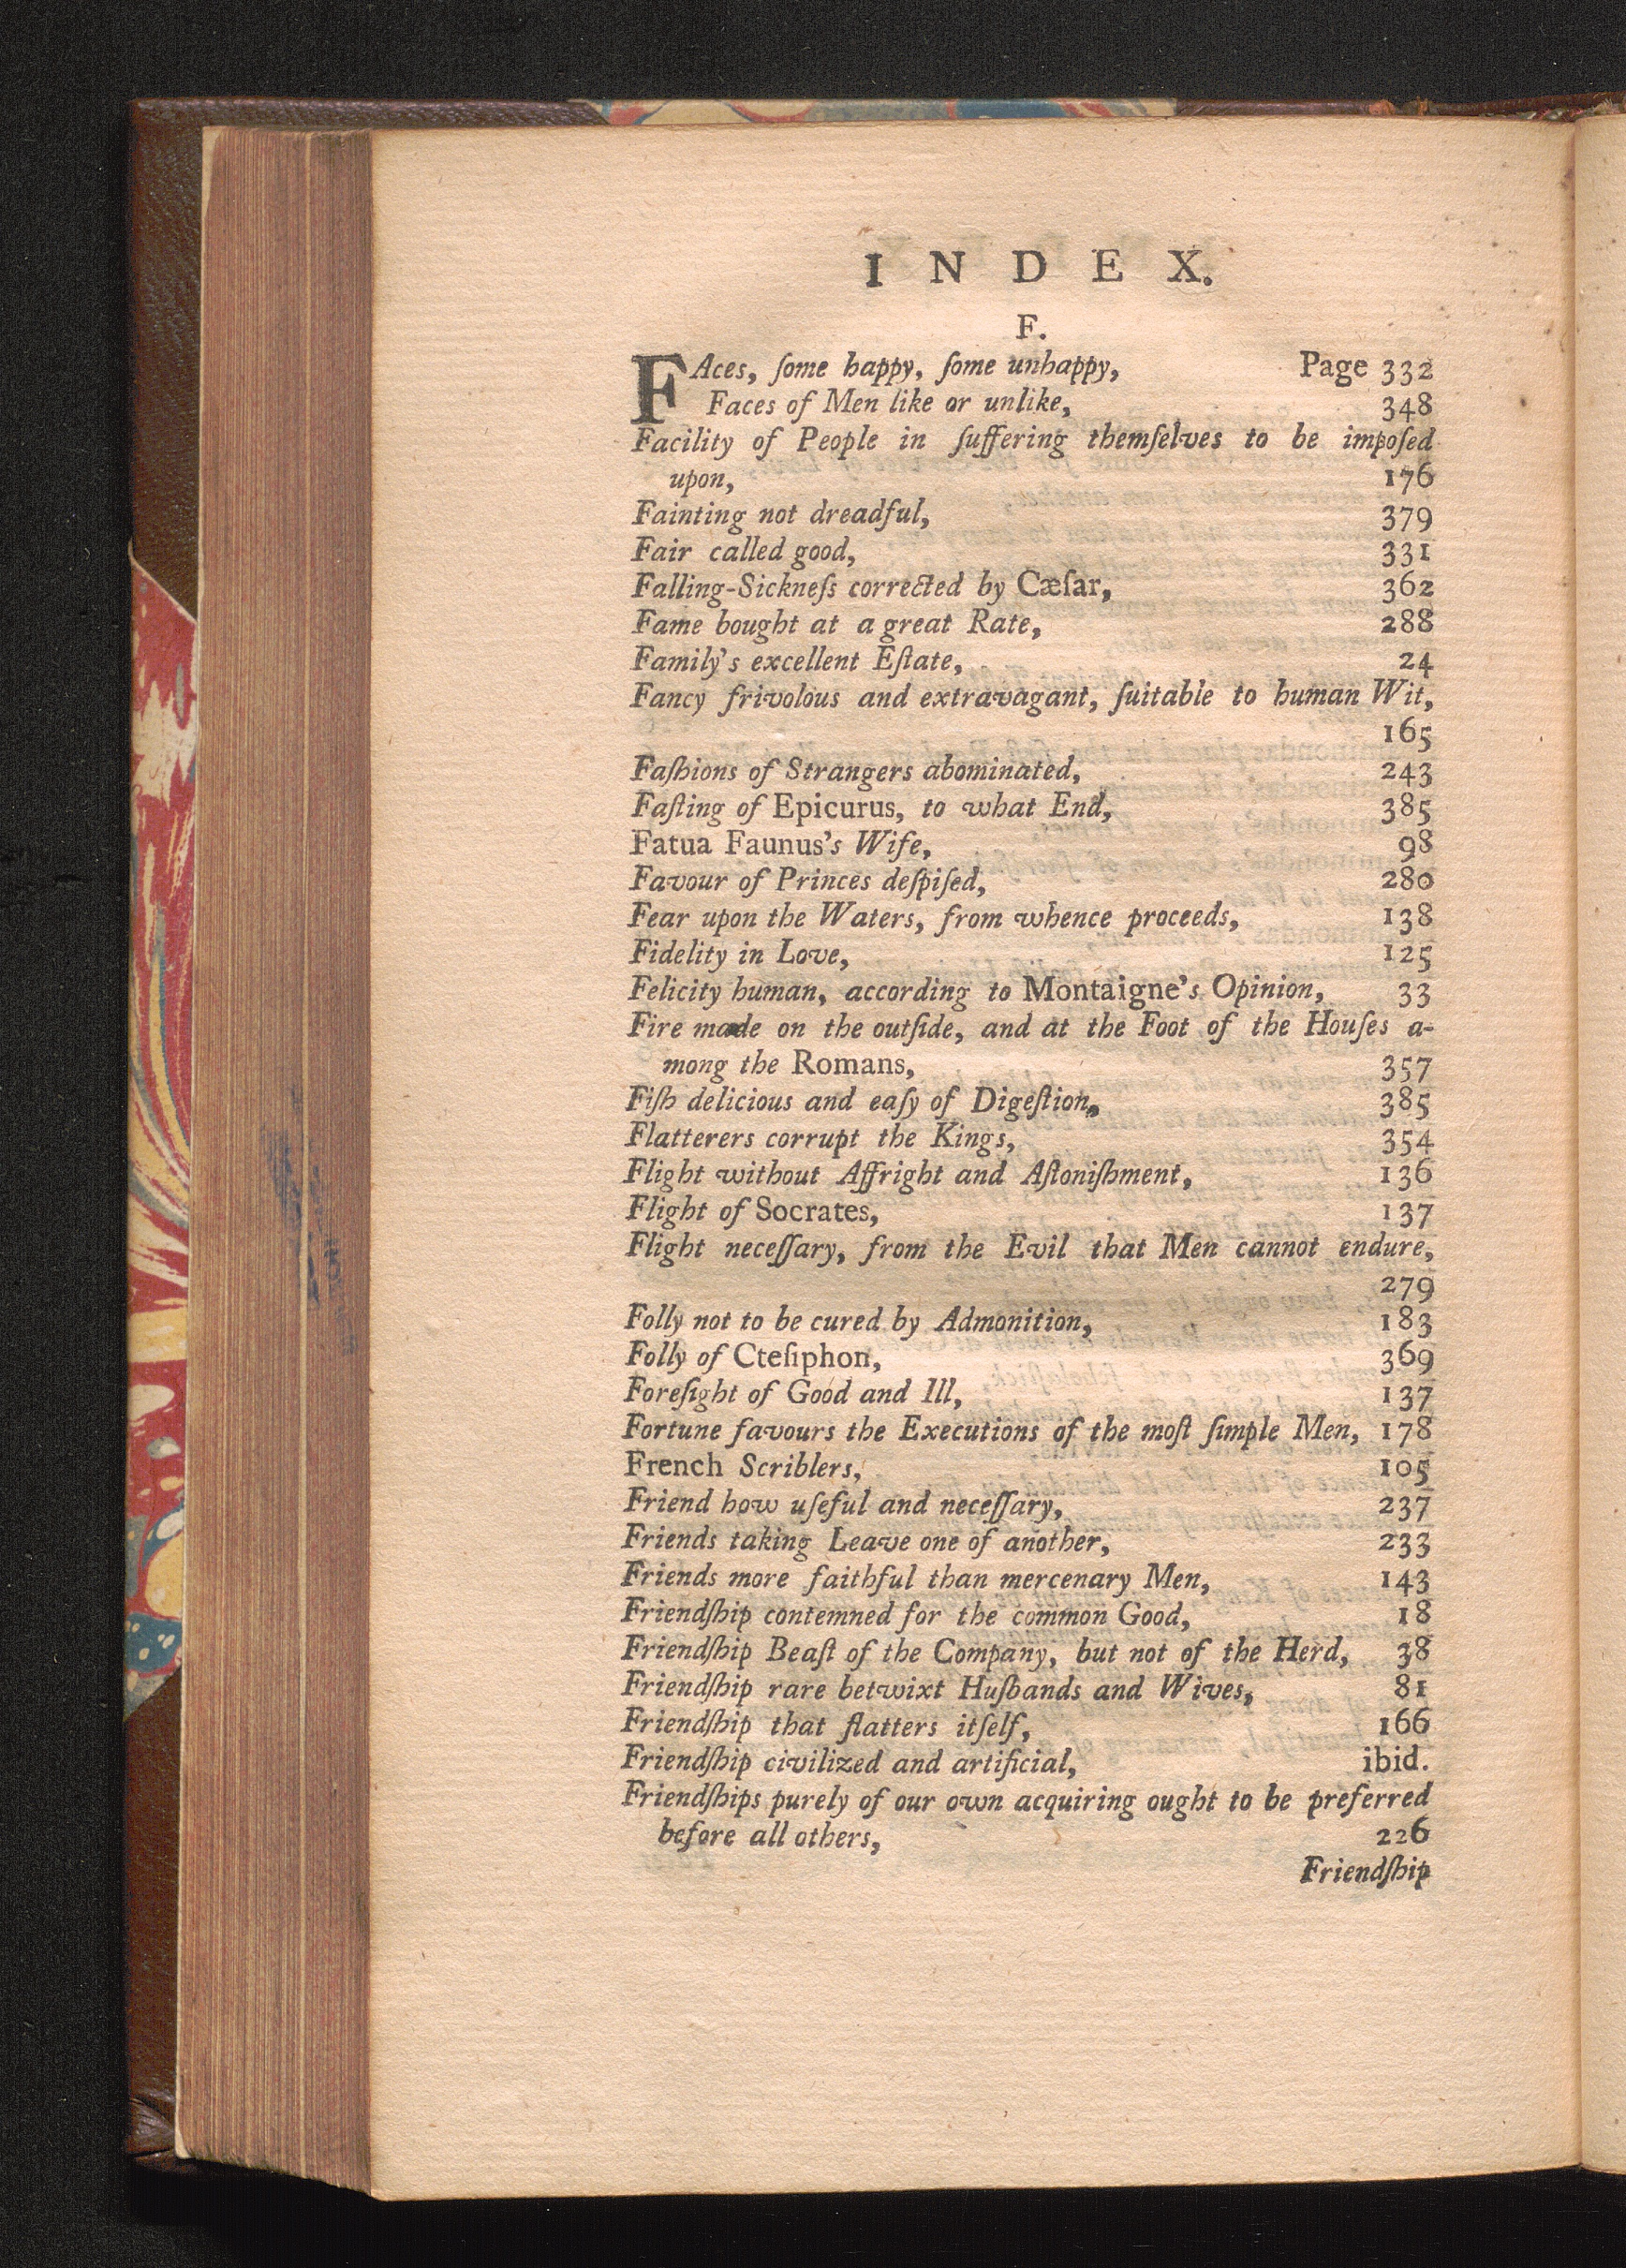 INDEX.
F.
FAces, ſome happy, ſome unhappy, Page 332
Faces of Men like or unlike, 348
Facility of People in ſuffering themſelves to be impoſed
upon, 176
Fainting not dreadful, 379
Fair called good, 331
Falling-Sickneſs corrected by Cæſar, 362
Fame bought at a great Rate, 288
Family's excellent Eſtate, 24
Fancy frivolous and extravagant, ſuitable to human Wit,
165
Faſhions of Strangers abominated, 243
Faſting of Epicurus, to what End, 385
Fatua Faunus's Wife, 98
Favour of Princes deſpiſed, 280
Fear upon the Waters, from whence proceeds, 138
Fidelity in Love, 125
Felicity human, according to Montaigne's Opinion, 33
Fire made on the outſide, and at the Foot of the Houſes a-
mong the Romans, 357
Fiſh delicious and eaſy of Digeſtion, 385
Flatterers corrupt the Kings, 354
Flight without Affright and Aſtoniſhment, 136
Flight of Socrates, 137
Flight neceſſary, from the Evil that Men cannot endure,
279
Folly not to be cured by Admonition, 183
Folly of Cteſiphon, 369
Foreſight of Good and Ill, 137
Fortune favours the Executions of the moſt ſimple Men, 178
French Scriblers, 105
Friend how uſeful and neceſſary, 237
Friends taking Leave one of another, 233
Friends more faithful than mercenary Men, 143
Friendſhip contemned for the common Good, 18
Friendſhip Beaſt of the Company, but not of the Herd, 38
Friendſhip rare betwixt Huſbands and Wives, 81
Friendſhip that flatters itſelf, 166
Friendſhip civilized and artificial, ibid.
Friendſhips purely of our own acquiring ought to be preferred
before all others, 226
Friendſhip